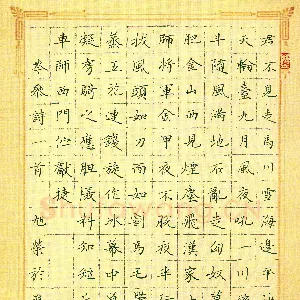 君不見走馬川雪海邊平
天輪臺九月風夜吼一川
斗隨風滿地石亂走匈奴
肥金山西見煙塵飛漢家
師將軍金甲夜不脫夜半
拔風頭如刀面如割馬毛
蒸五花連錢旋作冰幕中草
凝虜騎之應膽懾料知短
車師西門佇獻捷
岑參詩一首 旭榮於